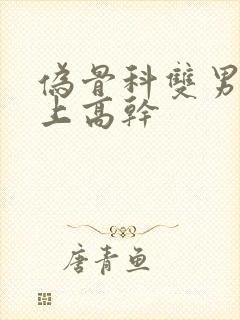 偽骨科雙男
上高幹
唐青魚